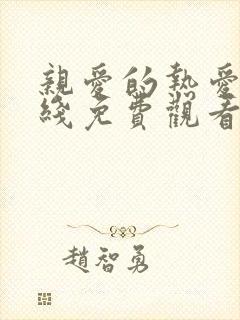 親愛的熱愛
綫免費觀看
趙智勇